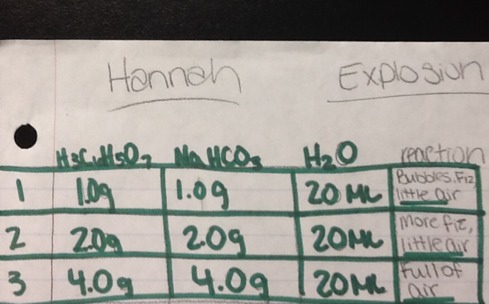 Hannah Explosion
H3C6H5O7 NaHCO3 H2O reaction
1 1.0g 1.0g 20 ML Bubbles, Fiz
little air
2 2.0g 2.0g 20ML More fiz,
little air
3 4.0g 4.0g 20ML Full of
air